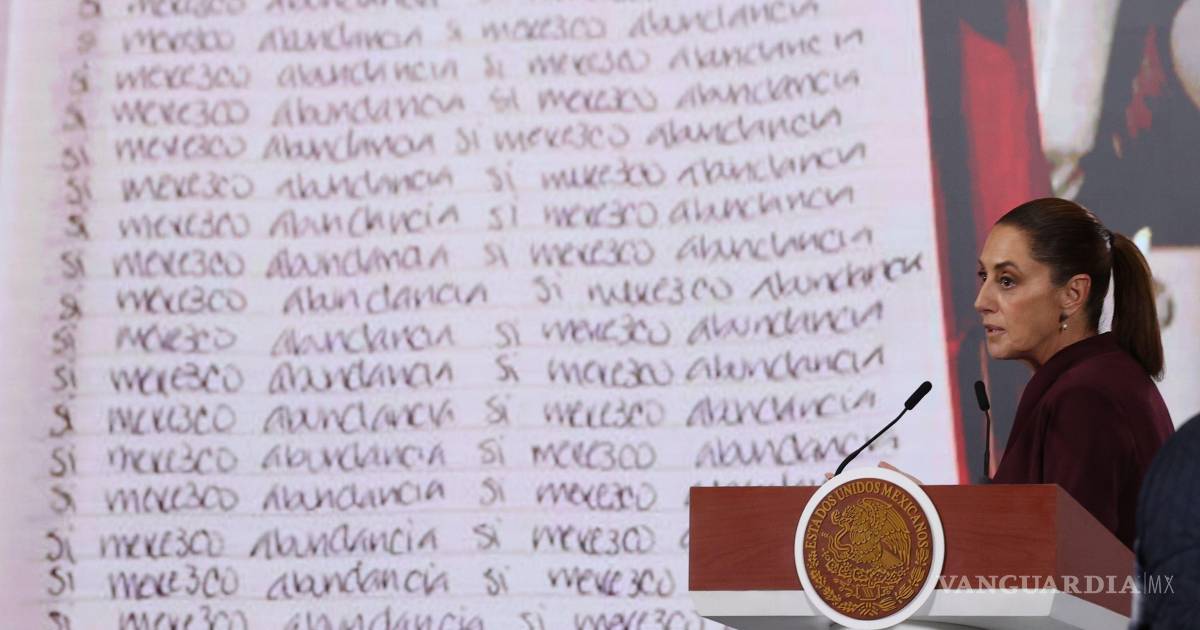 si merezco abundancia si merezco
si merezco abundancia si merezco abundancia
si merezco abundancia si merezco abundancia
si merezco abundancia si merezco abundancia
si merezco abundancia si merezco abundancia
si merezco abundancia si merezco abundancia
si merezco abundancia si merezco abundancia
si merezco abundancia si merezco abundancia
si merezco abundancia si merezco abundancia
si merezco abundancia si merezco abundancia
si merezco abundancia si merezco abundancia
si merezco abundancia si merezco abundancia
si merezco abundancia si merezco abundancia
si merezco abundancia si merezco
si merezco abundancia si merezco
si merezco abundancia si merezco
si merezco abundancia si merezco
ESTADOS UNIDOS MEXICANOS
VANGUARDIA|MX